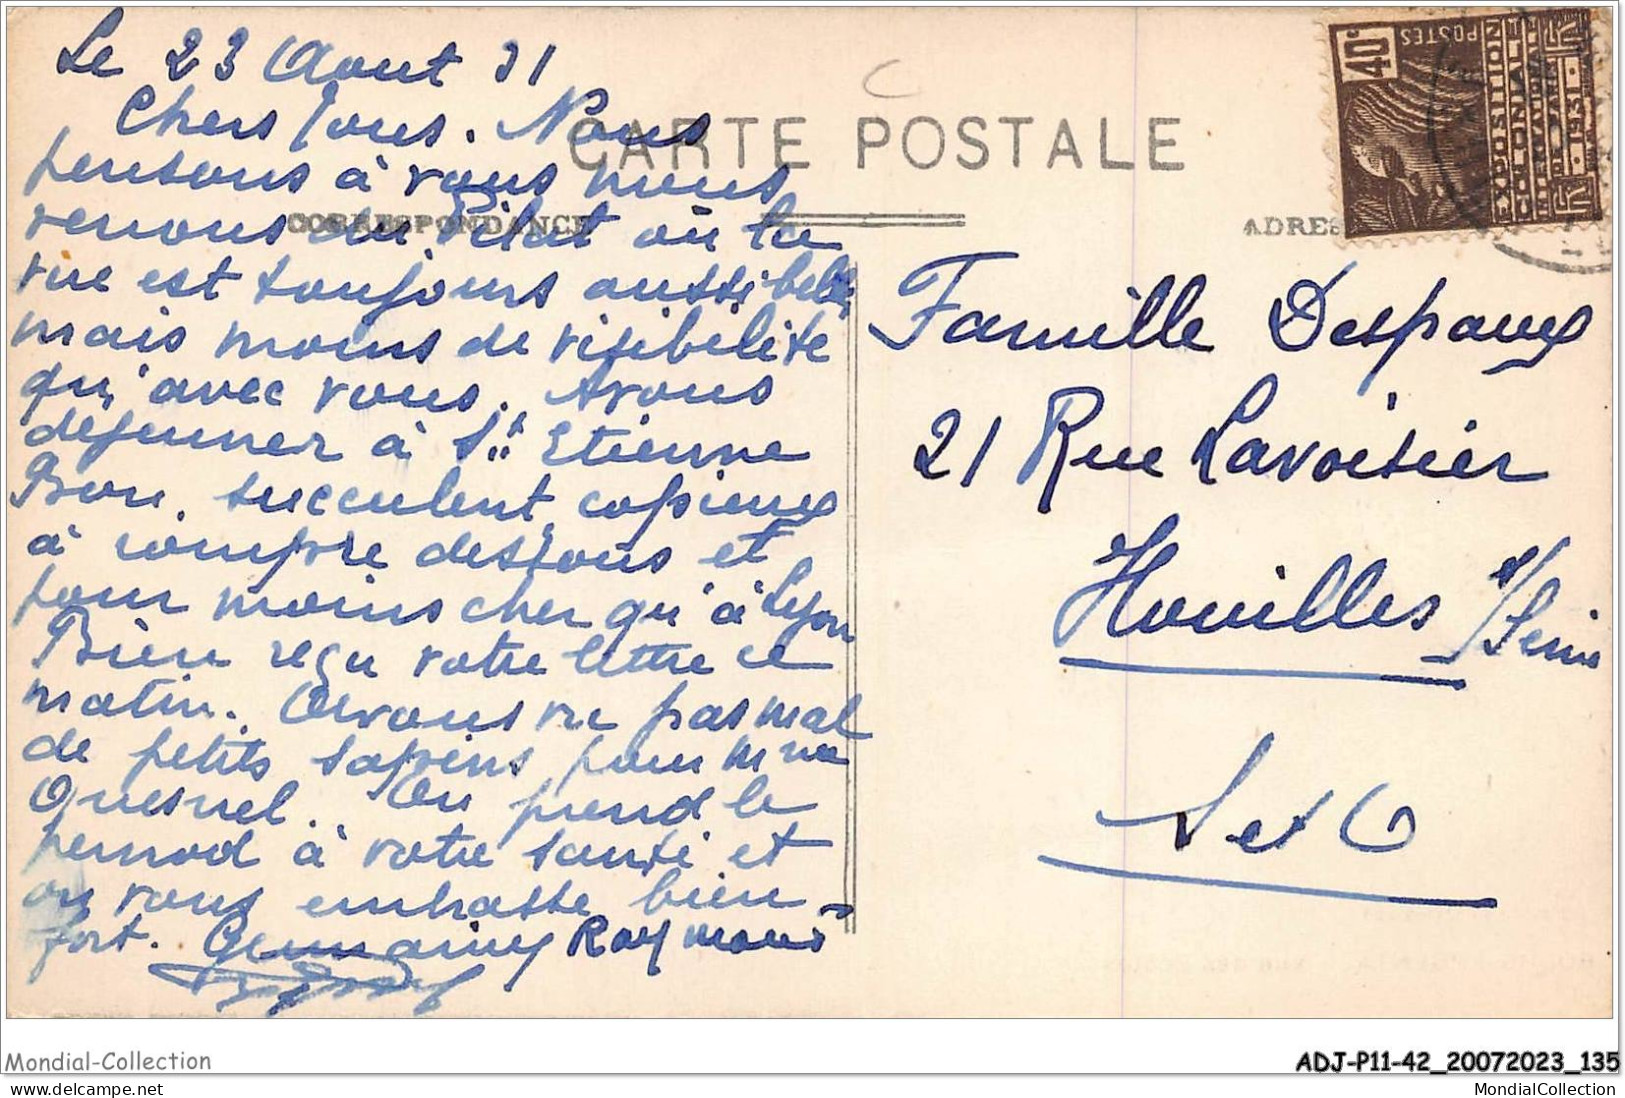 Le 23 Aout 31
Chers Tous. Nous
CARTE POSTALE
pensons à vous nous
CORRESPONDANCE
ADRES
venons du Pilat où la
vue est toujours aussi belle
mais moins de visibilité
qu'avec vous. Avons
dejeuner à St Etienne
Bon, succulent, copieux
à rompre dessous et
pour moins cher qu'à Lyon
Bien reçu votre lettre ce
matin. Avons vu pas mal
de petits sapins pour Mme
Quesnel. On prend le
pernod à votre santé et
on vous embrasse bien
fort. Germaine Raymond
Famille Despaux
21 Rue Lavoisier
Houilles s/Seine
S et O
40c
POSTES
EXPOSITION
COLONIALE
INTERNATIONALE
DE PARIS
1931
Mondial-Collection
ADJ-P11-42_20072023_135
delcampe.net
MondialCollection